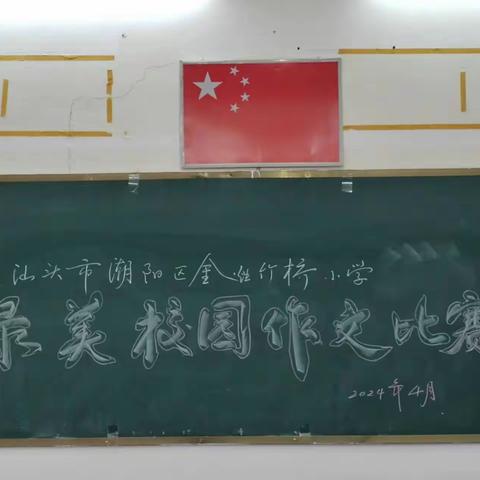 汕头市潮阳区金灶竹桥小学
最美校园作文比赛
2024年4月